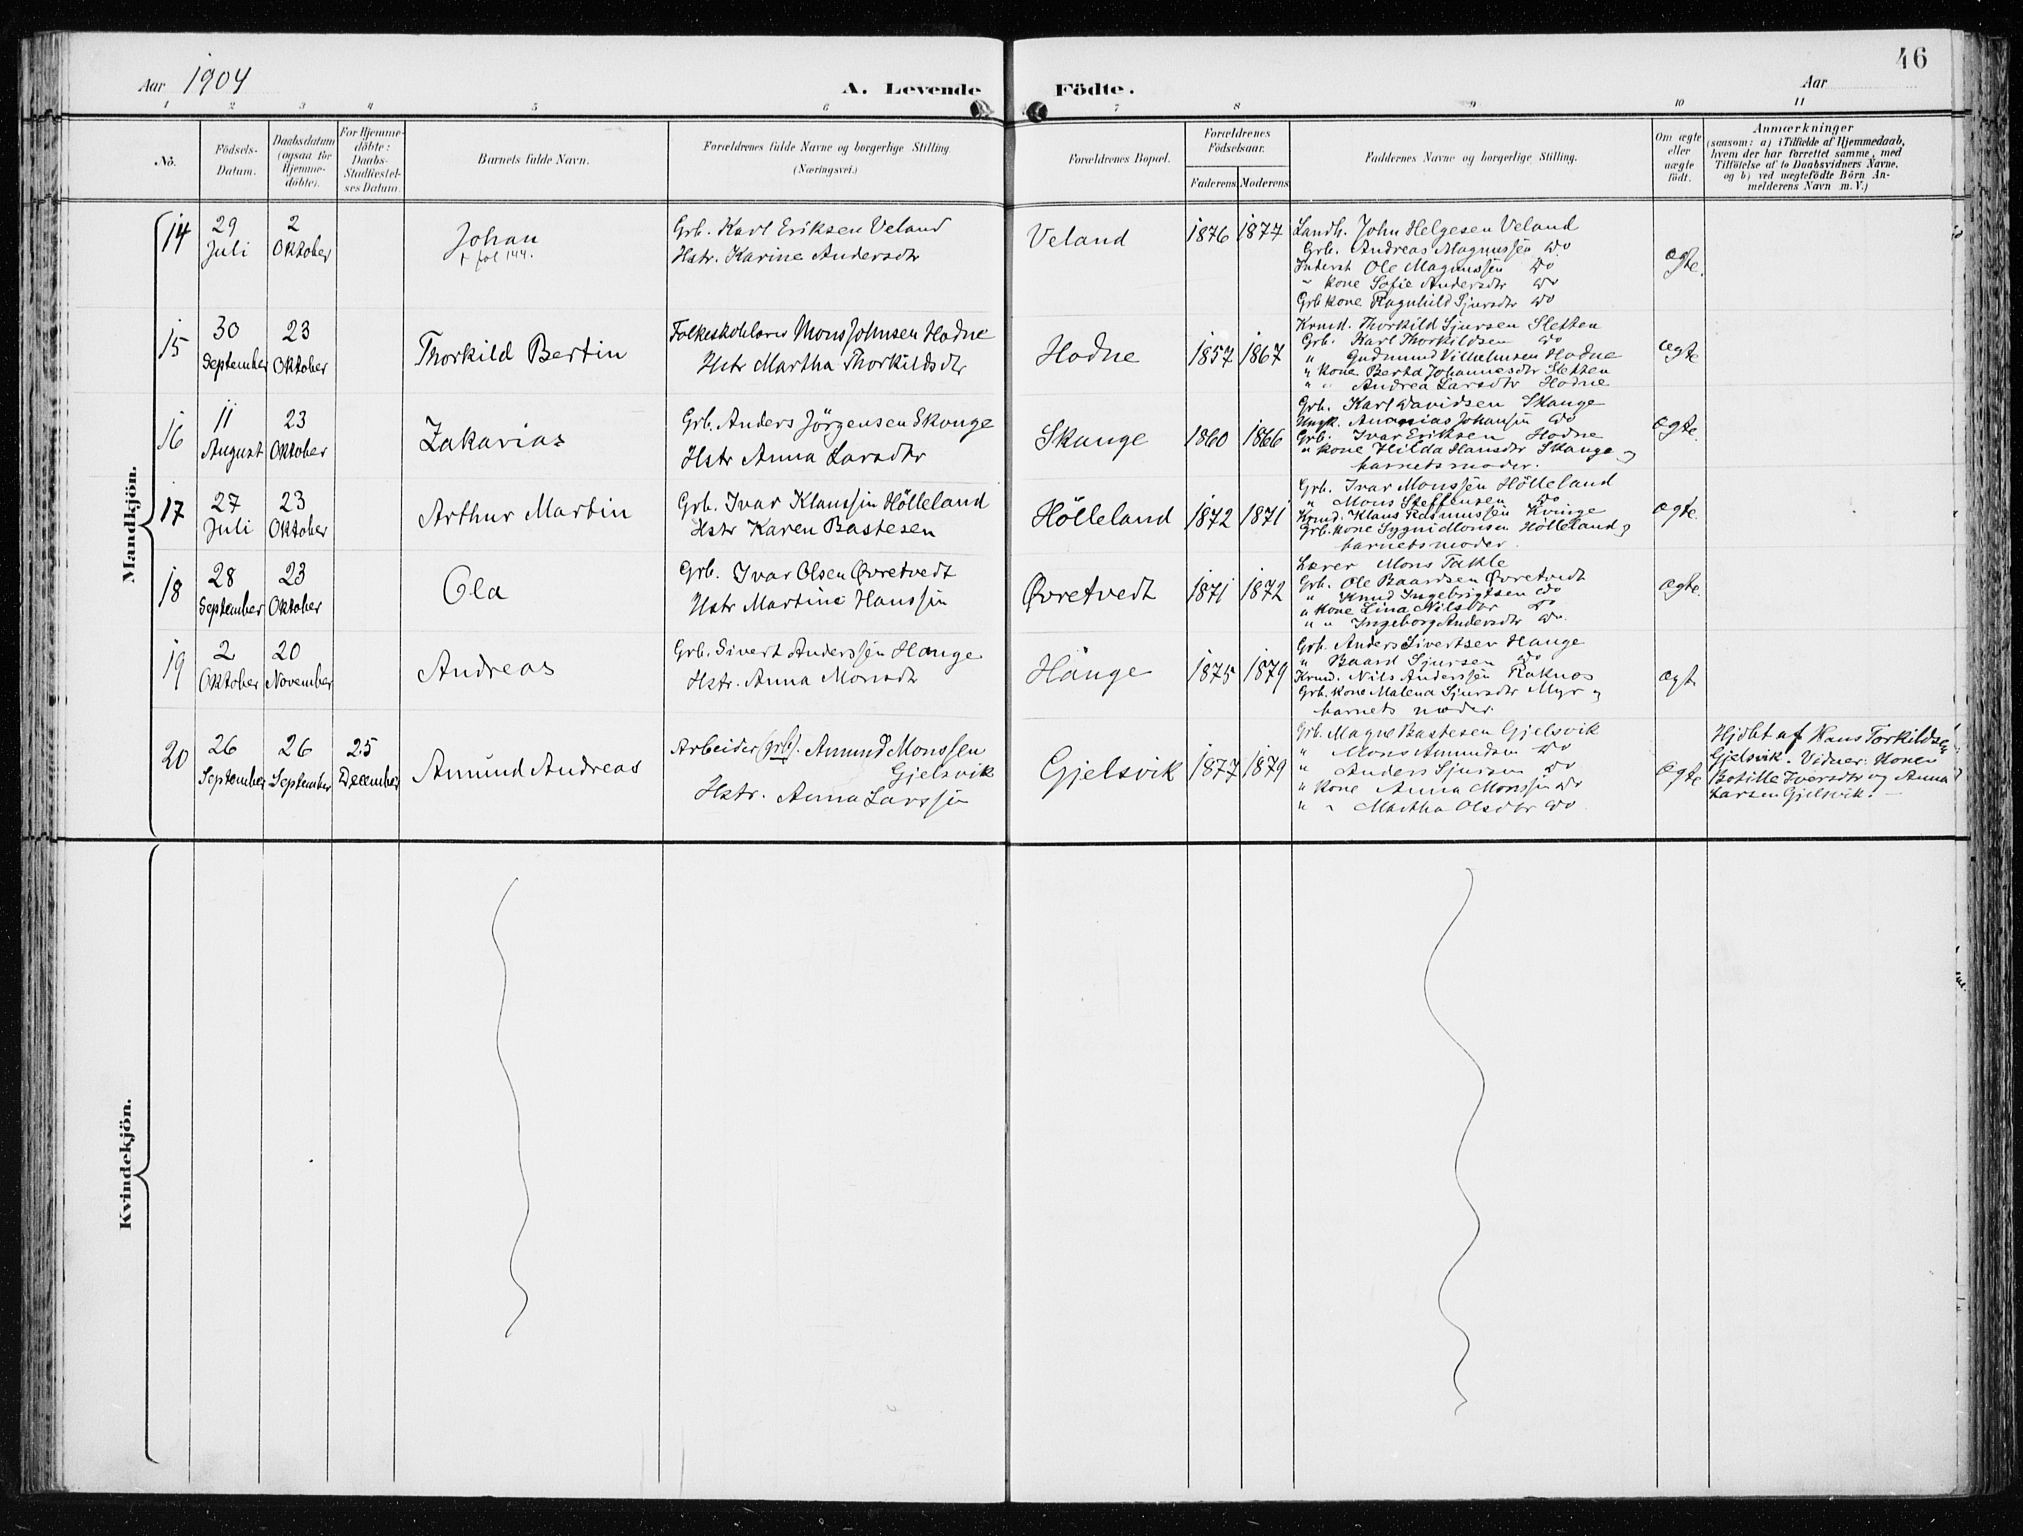 46
Aar 1904
A. Levende Födte.
Aar
1 2 3 4 5 6 7 8 9 10 11
No.
Födsels-Datum.
Daabsdatum (ogsaa for Hjemme-döbte).
For Hjemme-döbte: Daabs-Stadfæstel-ses Datum.
Barnets fulde Navn.
Forældrenes fulde Navne og borgerlige Stilling (Næringsvei.)
Forældrenes Bopæl.
Forældrenes Födselsaar.
Faderens. Moderens
Faddernes Navne og borgerlige Stilling.
Om ægte eller uægte födt.
Anmærkninger
(saasom: a) i Tilfælde af Hjemmedaab,
hvem der har forrettet samme, med
Tilföielse af to Daabsvidners Navne,
og b) ved uægtefödte Börn An-
melderens Navn m. V.)
Mandkjön.
14
29 Juli
2 Oktober
Johan
+ fol 144.
Grb. Karl Eriksen Veland
Hstr. Karine Andersdtr
Veland
1876 1877
Landh. John Helgesen Veland
Grb. Andreas Magnussen do
Inderst Ole Magnussen do
" kone Sofie Andersdtr do
Grb kone Ragnhild Sjursdtr do
ægte.
15
30 September
23 Oktober
Thorkild Bertin
Folkeskolelærer Mons Johnsen Hodne
Hstr Martha Thorkildsdtr
Hodne
1857 1867
Krmd. Thorkild Sjursen Sletten
Grb. Karl Thorkildsen do
" Gudmund Vilhelmsen Hodne
" kone Berta Johannesdtr Sletten
" " Andrea Larsdtr Hodne
ægte
16
11 August
23 Oktober
Zakarias
Grb. Anders Jörgensen Skange
Hstr Anna Larsdtr
Skange
1860 1866
Grb. Karl Davidsen Skange
Ungk. Ananias Johansen do
Grb. Ivar Eriksen Hodne
" kone Hilda Hansdtr Skange og
barnets moder.
ægte.
17
27 Juli
23 Oktober
Arthur Martin
Grb. Ivar Klaussen Hölleland
Hstr Karen Bastesen
Hölleland
1872 1871
Grb. Ivar Monssen Hölleland
" Mons Steffensen do
Krmd. Klaus Rasmussen Kvinge
Grb. kone Sygni Monsen Hölleland og
barnets moder.
ægte.
18
28 September
23 Oktober
Ola
Grb. Ivar Olsen Øvretvedt
Hstr Martine Hanssen
Øvretvedt
1871 1872
Lærer Mons Takle
Grb. Ole Baardsen Øvretvedt
" Knud Ingebrigtsen do
" kone Lina Nilsdtr do
" " Ingeborg Andersdtr do.
ægte.
19
2 Oktober
20 November
Andreas
Grb. Sivert Anderssen Hange
Hstr. Anna Monsdtr
Hange
1875 1879
Grb. Anders Sivertsen Hange
" Baard Sjursen do
Krmd. Nils Anderssen Raknes
Grb. kone Malena Sjursdtr Myr og
barnets moder.
ægt
20
26 September
26 September
25 December
Amund Andreas
Arbeider (grb). Amund Monssen
Gjelsvik
Hstr. Anna Larssen
Gjelsvik
1877 1879
Grb. Magne Bastesen Gjelsvik
" Mons Amundsen do
" Anders Sjursen do
" kone Anna Monssen do
" " Martha Olsdtr do
ægte
Hjdbt af Hans Torkildsen
Gjelsvik. Vidner: Konen
Botille Iversdtr og Anna
Larsen Gjelsvik.
Kvindekjön.